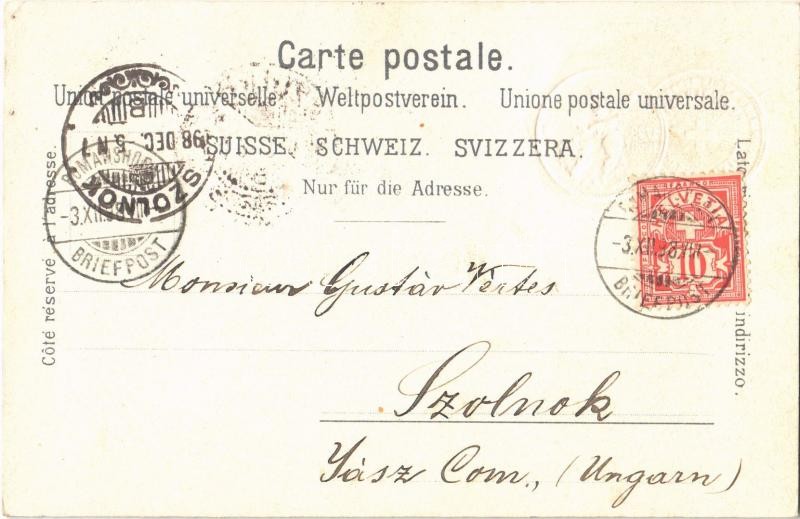 Carte postale.
Union postale universelle. Weltpostverein. Unione postale universale.
SUISSE. SCHWEIZ. SVIZZERA.
Nur für die Adresse.
Côté réservé à l'adresse.
Lato
indirizzo.
SZOLNOK
98 DEC. 5 N7
ROMANSHORN
-3.XII.
BRIEFPOST
HELVETIA
10
-3.XII.98
BRIEFPOST
Monsieur Gustàv Vértes
Szolnok
Jász Com., (Ungarn)